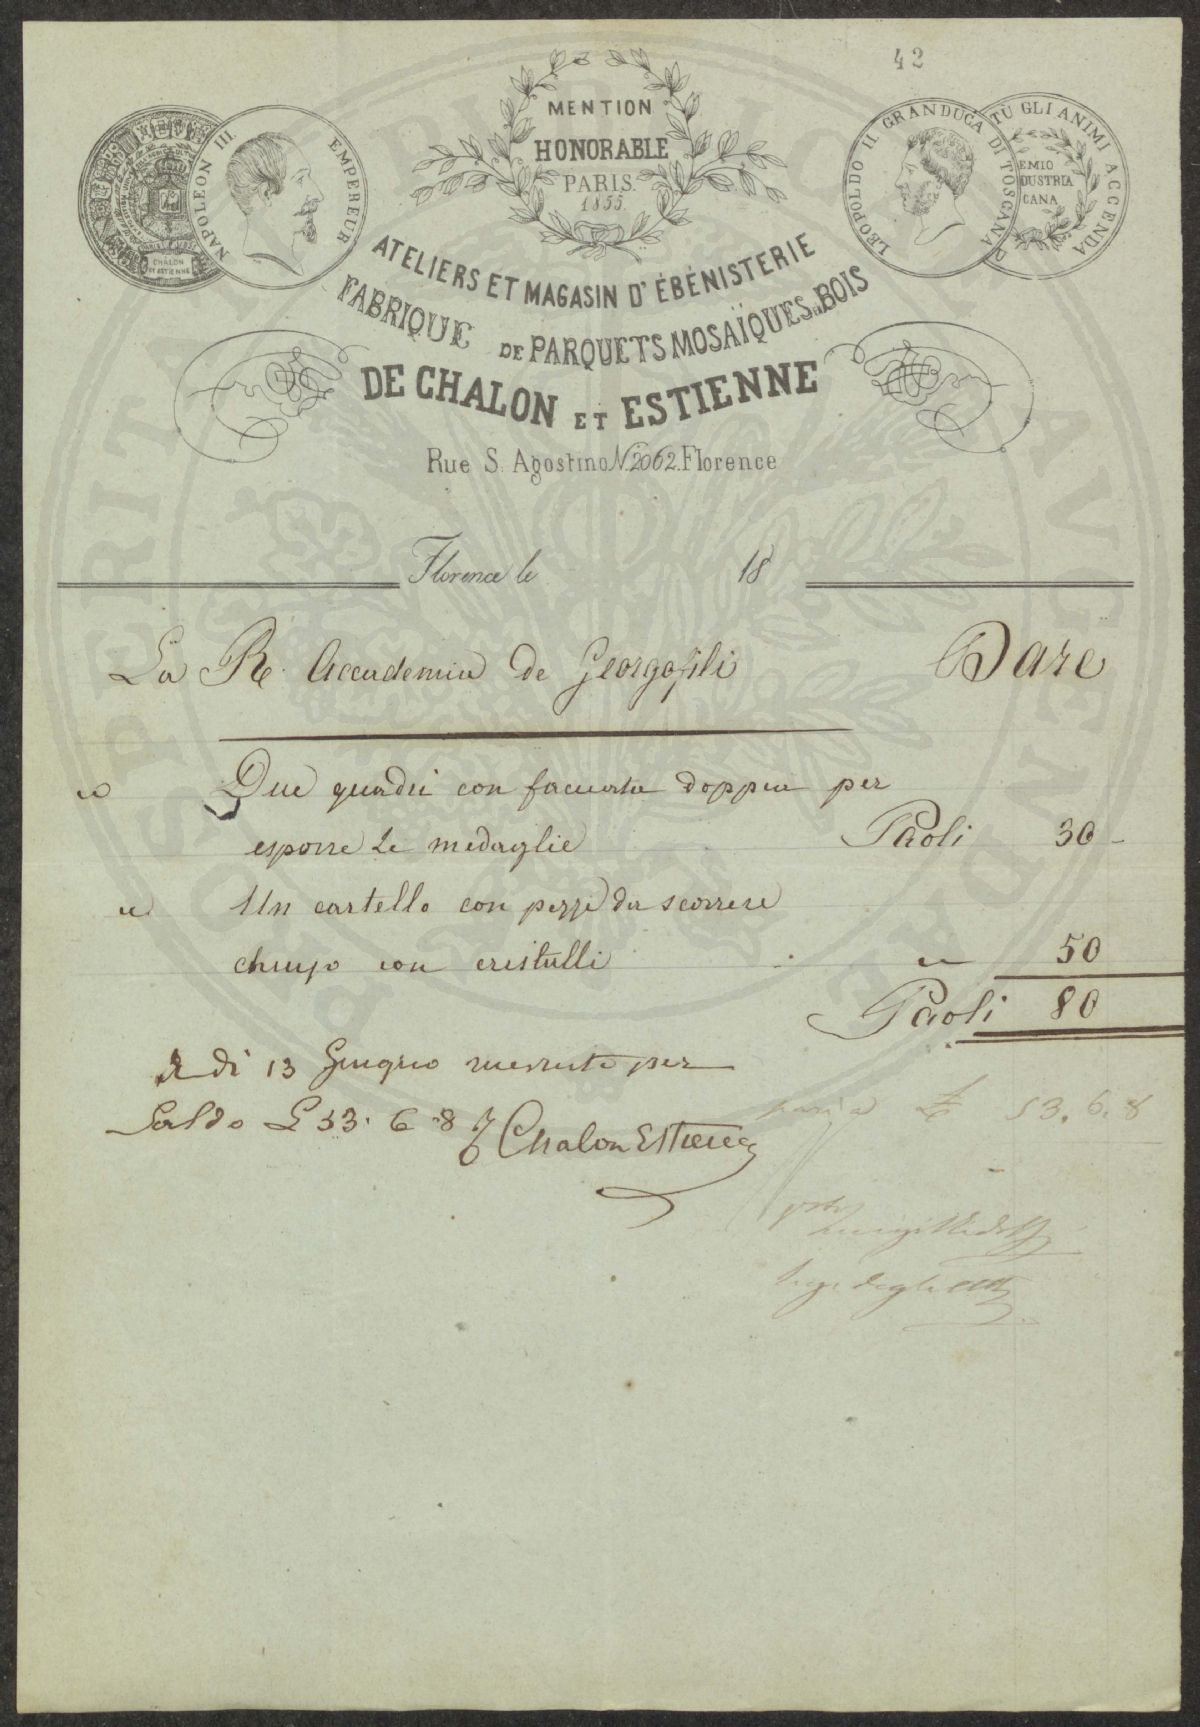 42
MENTION
HONORABLE
PARIS.
1855.
NAPOLEON III. EMPEREUR
CHALON
ET ESTIENNE
LEOPOLDO II. GRANDUCA DI TOSCANA
TU GLI ANIMI ACCENDA
EMIO
DUSTRIA
CANA
ATELIERS ET MAGASIN D'ÉBÉNISTERIE
FABRIQUE DE PARQUETS MOSAÏQUES EN BOIS
DE CHALON ET ESTIENNE
Rue S. Agostino N. 2062. Florence
Florence le 18
La R. Accademia de Georgofili Dare
Due quadri con facciata doppia per
esporre le medaglie Paoli 30 -
Un cartello con pezzi da scorrere
chiuso con cristalli 50
Paoli 80
A dì 13 Giugno ricevuto per
Saldo £ 53. 6. 8 Chalon Estienne
pari a £ 53. 6. 8
PROSPERITATI PUBLICAE AUGENDAE